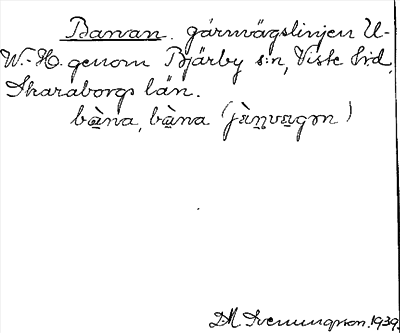 Banan. järnvägslinjen U-
W.-H. genom Bjärby s:n, Viste hrd,
Skaraborgs län.
bàna, bàna (jä̀ṇvagən)
D.M. Svenungsson. 1939.